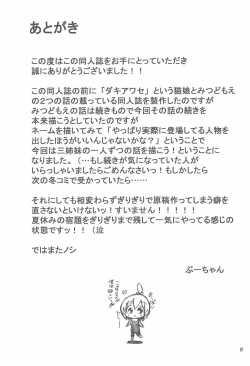 あとがき
この度はこの同人誌をお手にとっていただき
誠にありがとうございました！！
この同人誌の前に「ダキアワセ」という猫娘とみつどもえ
の２つの話の載っている同人誌を製作したのですが
みつどもえの話の続きをもって今回その話の続きを
本来描こうとしていたのですが
ネームを描いてみて「やっぱり実際に登場してる人物を
出したほうがいいんじゃないかな？」ということで
今回は三姉妹の一人ずつの話を描こう！ということに
なりました。（…もし続きが気になっていた人が
いらっしゃいましたらごめんなさいっ！もしかしたら
次の冬コミで受かっていたら……
それにしても相変わらずぎりぎりで原稿作ってしまう癖を
直さないといけないッ！すいません！！！！！
夏休みの宿題をぎりぎりまで残して一気にやってる感じの
状態ですッ！！（泣
ではまたノシ
ぶーちゃん